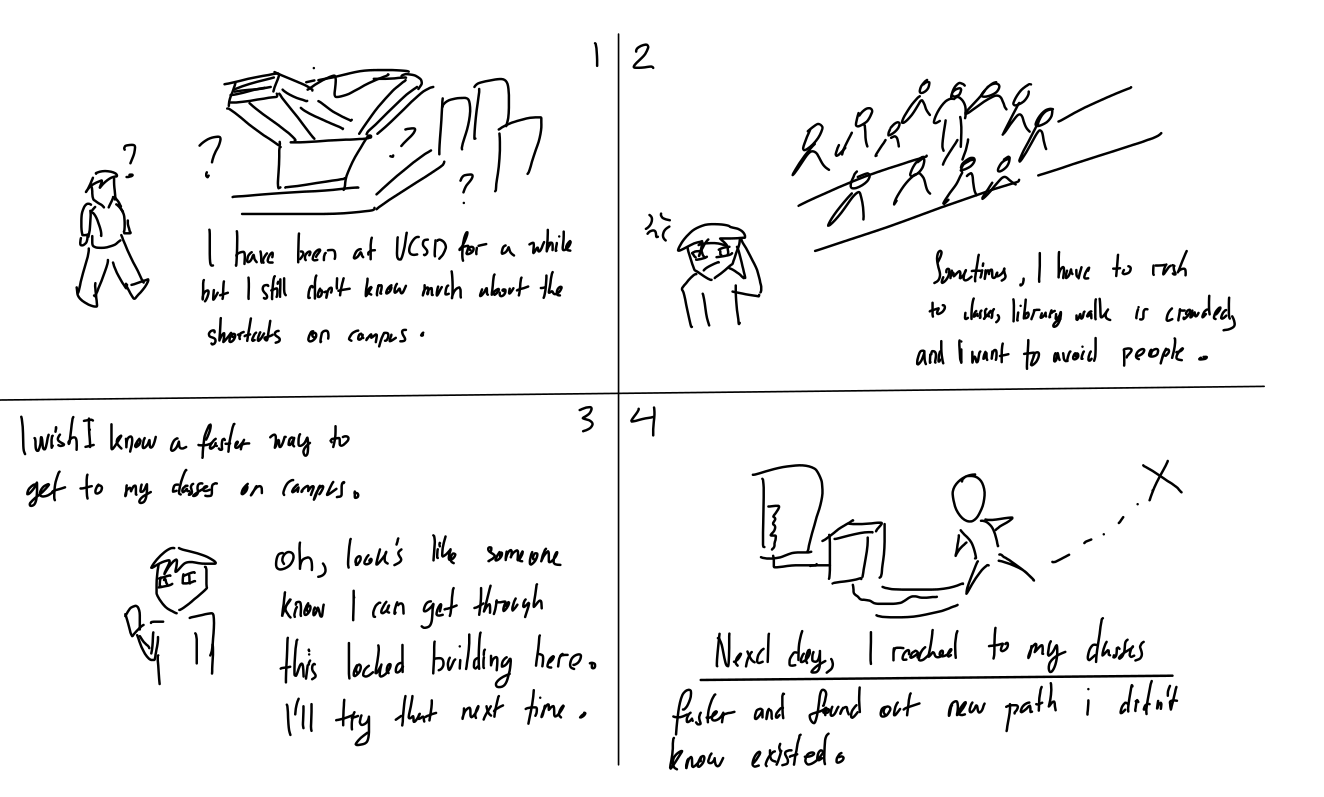 1
?
?
?
?
I have been at UCSD for a while
but I still don't know much about the
shortcuts on campus.
2
Sometimes, I have to rush
to class, library walk is crowded
and I want to avoid people.
3
I wish I know a faster way to
get to my classes on campus.
Oh, look's like someone
know I can get through
this locked building here.
I'll try that next time.
4
X
day, I reached to my classes
faster and found out new path i didn't
know existed.